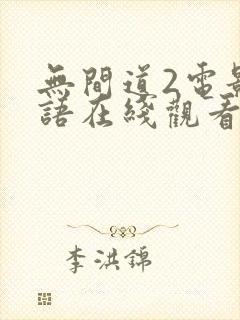 無間道2電影
語在綫觀看
李洪錦